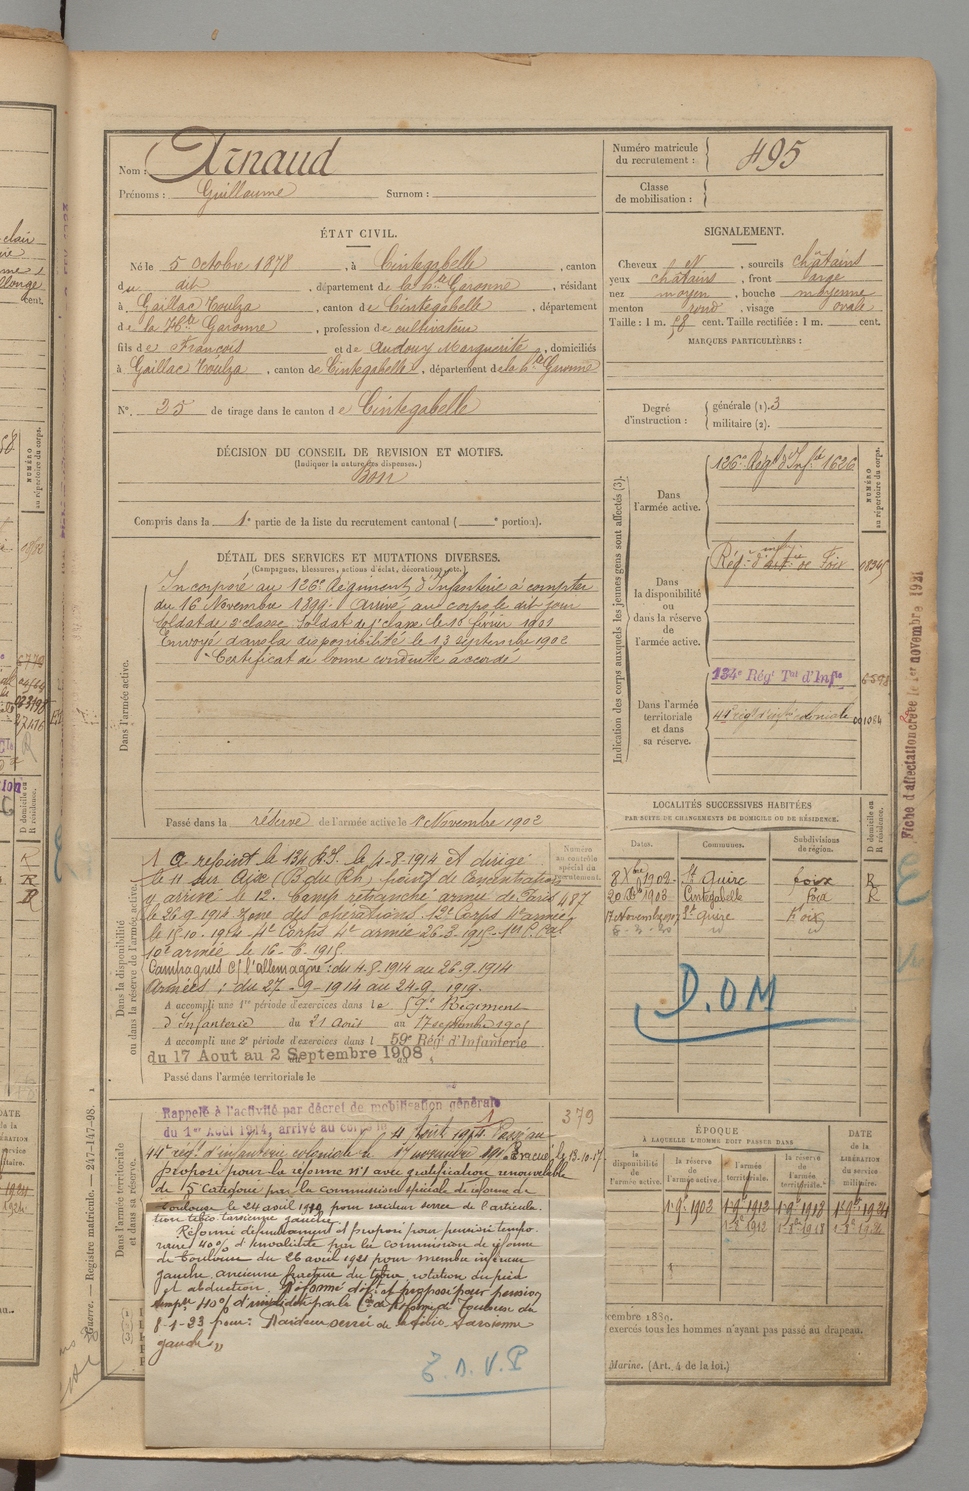 Nom : Arnaud
Prénoms : Guillaume Surnom :
Numéro matricule du recrutement : 495
Classe de mobilisation :
ÉTAT CIVIL.
Né le 5 Octobre 1878, à Cintegabelle, canton
du dit, département de la hte Garonne, résidant
à Gaillac Toulza, canton de Cintegabelle, département
de la Hte Garonne, profession de cultivateur
fils de François et de Audouy Marguerite, domiciliés
à Gaillac Toulza, canton de Cintegabelle, département de la hte Garonne
N°. 25 de tirage dans le canton de Cintegabelle
DÉCISION DU CONSEIL DE REVISION ET MOTIFS.
(Indiquer la nature des dispenses.)
Bon
Compris dans la 1e partie de la liste du recrutement cantonal ( e portion).
SIGNALEMENT.
Cheveux, sourcils châtains
yeux châtains, front large
nez moyen, bouche moyenne
menton rond, visage ovale
Taille : 1 m. cent. Taille rectifiée : 1 m. cent.
MARQUES PARTICULIÈRES :
Degré d'instruction : générale (1). 3
militaire (2).
DÉTAIL DES SERVICES ET MUTATIONS DIVERSES.
(Campagnes, blessures, actions d'éclat, décorations, etc.)
Dans l'armée active.
Incorporé au 126e Régiment d'Infanterie à compter
du 16 Novembre 1899. Arrivé au corps le dit jour
Soldat de 2e classe. Soldat de 1e classe le février
Envoyé dans la disponibilité le 13 Septembre 1902
Certificat de bonne conduite accordé
Passé dans la réserve de l'armée active le 1e Novembre 1902
Indication des corps auxquels les jeunes gens sont affectés (3).
NUMÉRO au répertoire du corps.
Dans l'armée active.
126e Régt d'Infie 1626
Dans la disponibilité ou dans la réserve de l'armée active.
Régt d' de Foix
134e Régt Tal d'Infie
Dans l'armée territoriale et dans sa réserve.
régt d'infie coloniale
Fiche d'affectation créée le 1er novembre 1921
LOCALITÉS SUCCESSIVES HABITÉES
PAR SUITE DE CHANGEMENTS DE DOMICILE OU DE RÉSIDENCE.
Dates. Communes. Subdivisions de région. D domicile ou R résidence.
8 Xbre 1902 St Quirc Foix R
20 1903 Cintegabelle Foix R
17 Novembre St Quirc Foix
D.O.M
Dans la disponibilité ou dans la réserve de l'armée active.
Numéro au contrôle spécial du recrutement.
A rejoint le 134 R.I. le 4-8-1914 et dirigé
le 11 sur Aix (B. du Rh) point de concentration
y arrivé le 12. Camp retranché armée de Paris
le 26.9.1914 zone des opérations 12e Corps 4e armée
le 15-10-1914 4e Corps 4e armée 26-3-1915
10e armée le 16-6-1915
Campagnes c/ l'allemagne : du 4-8-1914 au 26-9-1914
Armées : du 27-9-1914 au 24-9-1919.
A accompli une 1re période d'exercices dans le 59e Régiment
d'Infanterie du 21 Août au 17 septembre
A accompli une 2e période d'exercices dans l 59e Régt d'Infanterie
du 17 Aout au 2 Septembre 1908
Passé dans l'armée territoriale le
Dans l'armée territoriale et dans sa réserve.
Rappelé à l'activité par décret de mobilisation générale
du 1er Août 1914, arrivé au corps le 4 Août 1914. Passé au
379
régt d'infanterie coloniale le 17 novembre. Evacué le 13-10-17.
Proposé pour la réforme n°1 avec gratification renouvelable
de 5e catégorie par la commission spéciale de réforme de
Toulouse le 24 avril pour raideur serrée de l'articula-
tion tibio-tarsienne gauche
Réformé définitivement et proposé pour pension tempo-
raire 40% d'invalidité par la commission de réforme
de Toulouse du 26 avril 1921 pour membre inférieur
gauche, ancienne fracture du tibia rotation du pied
et abduction. Réformé déft et proposé pour pension
40% d'invalidité par la Con de Réforme de Toulouse du
8-1-23 pour : Raideur serrée de la tibio tarsienne
gauche"
ÉPOQUE
À LAQUELLE L'HOMME DOIT PASSER DANS
la disponibilité de l'armée active. la réserve de l'armée active. l'armée territoriale. la réserve de l'armée territoriale.
DATE de la LIBÉRATION du service militaire.
1 9bre 1902 1 9bre 1912 1 9bre 1918 1 9bre 1924
exercés tous les hommes n'ayant pas passé au drapeau.
Marine. (Art. 4 de la loi.)
Guerre. — Registre matricule. — 247-147-98.